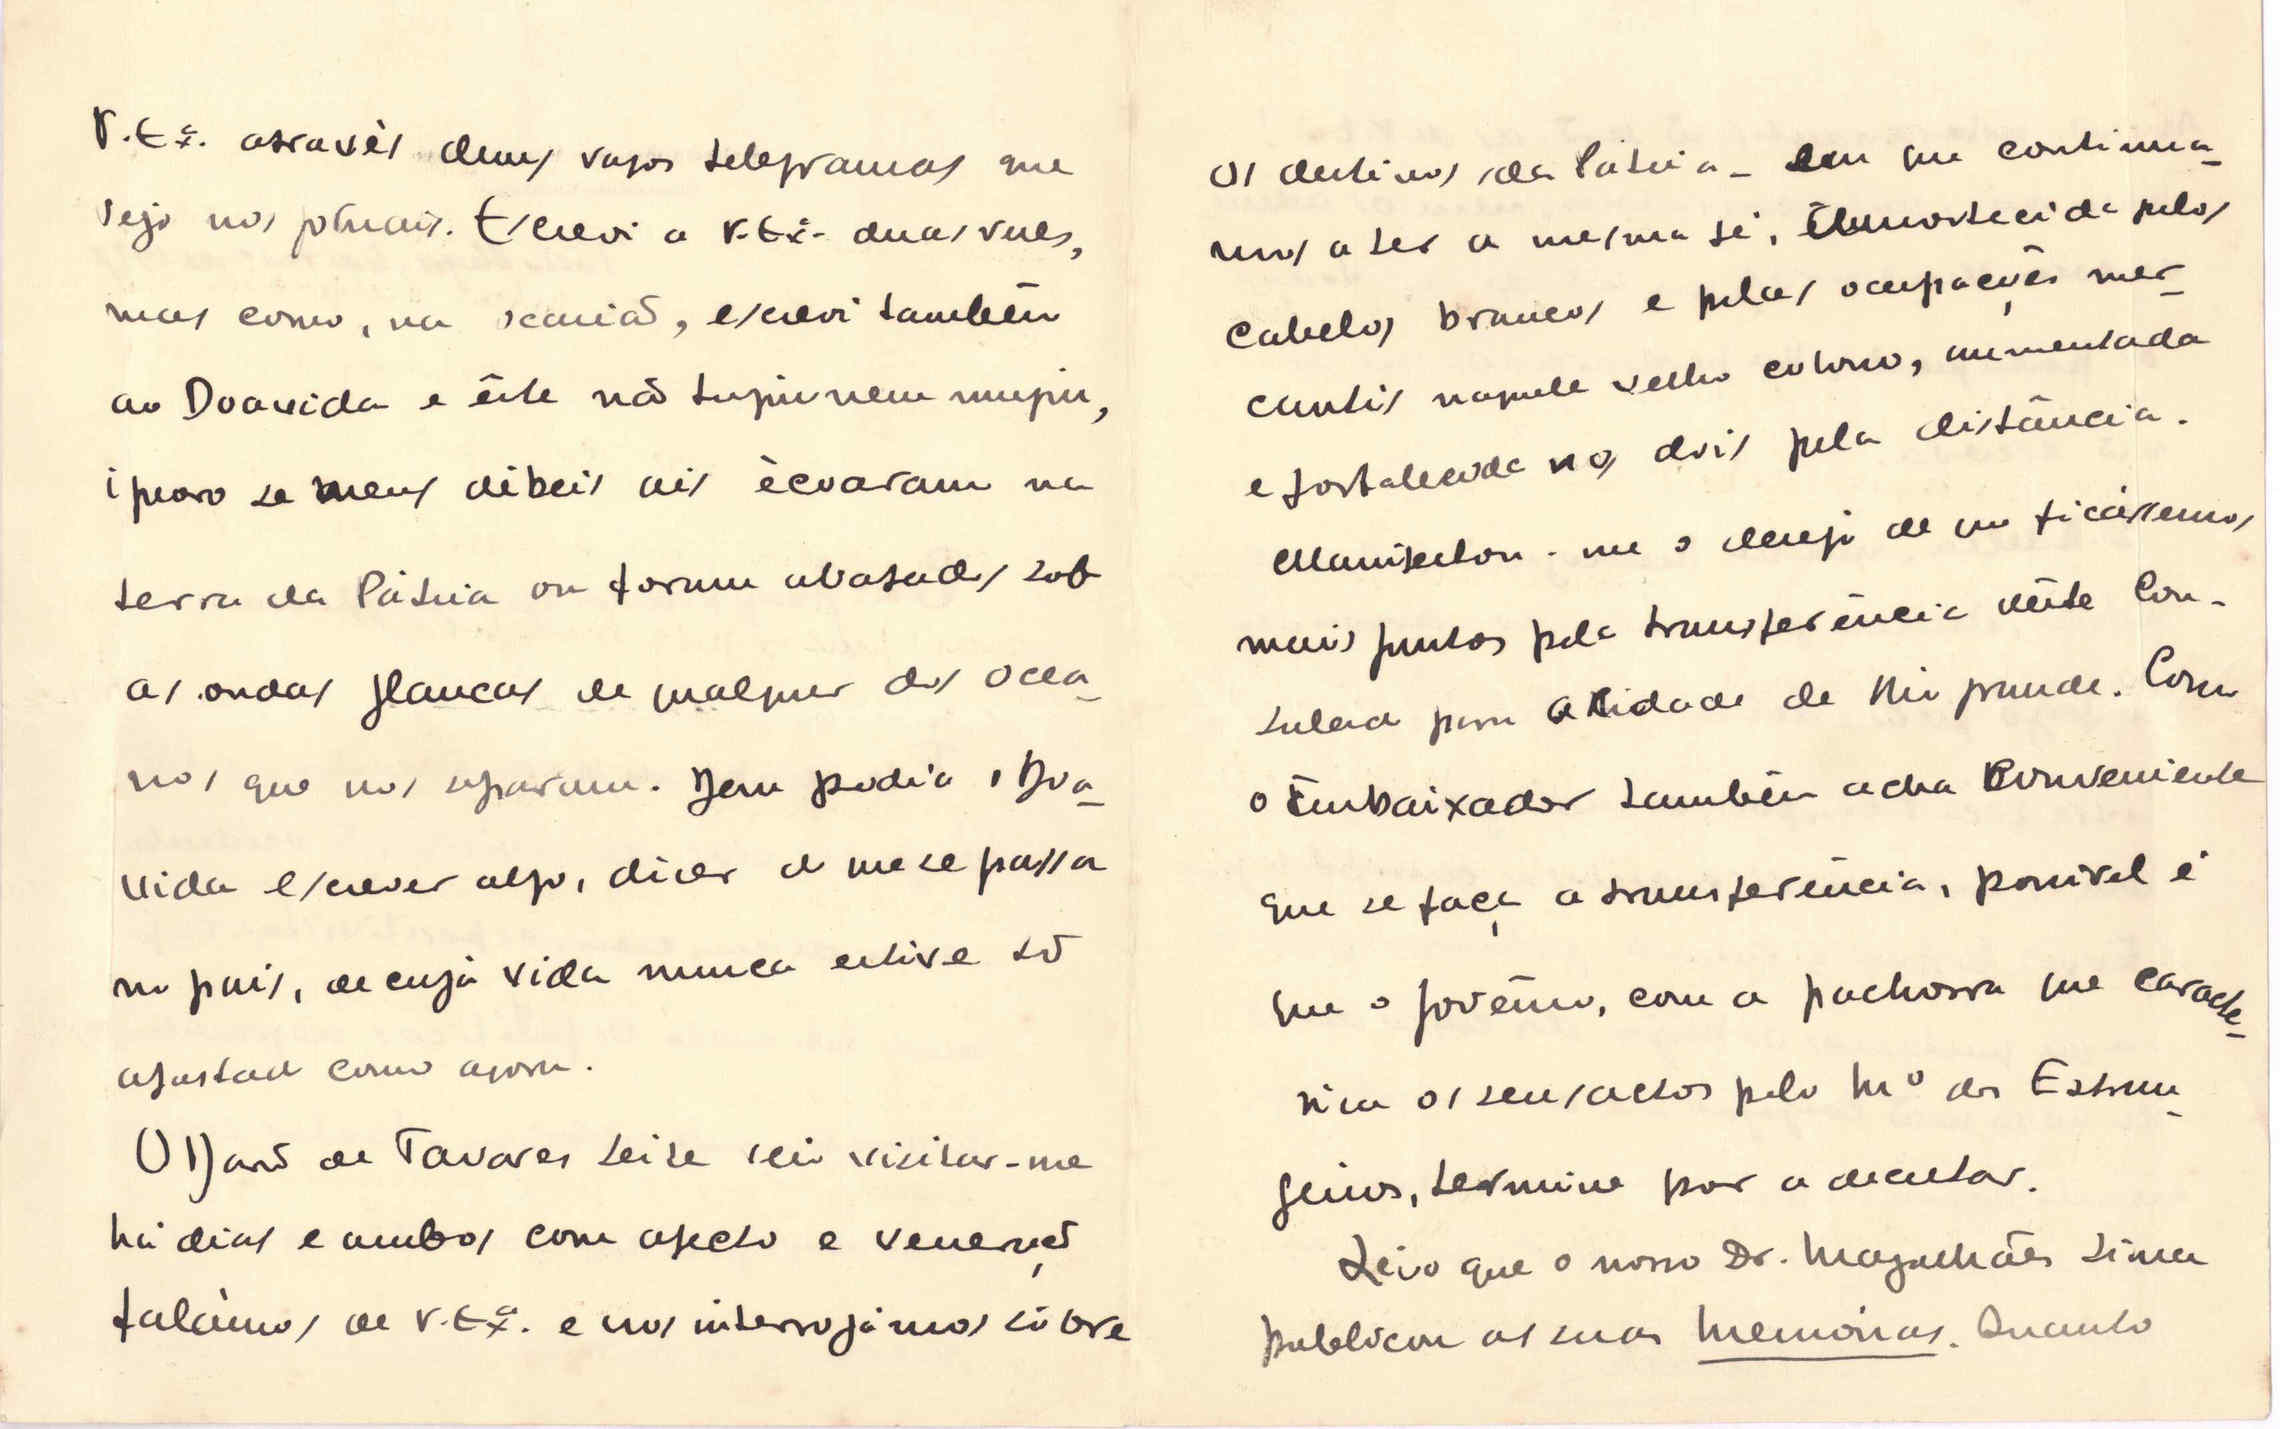 V. Exª. através duns vagos telegramas que
vejo nos jornais. Escrevi a V. Exª. duas vezes,
mas como, na ocasião, escrevi também
ao Boavida e êste não tugiu nem mugiu,
ignoro se meus débeis ais ècoaram na
terra da Pátria ou foram abafados sob
as ondas glaucas de qualquer dos ocea-
nos que nos separam. Bem podia o Boa-
vida escrever algo, dizer o que se passa
no país, de cuja vida nunca estive tão
afastado como agora.
O Barão de Tavares Leite veio visitar-me
há dias e ambos com afecto e veneração
falámos de V. Exª. e nos interrogámos sôbre
os destinos da Pátria - em que continua-
mos a ter a mesma fé, amortecida pelos
cabelos brancos e pelas ocupações mer-
cantis naquele velho colono, aumentada
e fortalecida nos dois pela distância.
Manifestou-me o desejo de que ficássemos
mais juntos pela transferência dêste Con-
sulado para a Cidade de Rio grande. Como
o Embaixador também acha conveniente
que se faça a transferência, possível é
que o govêrno, com a pachorra que caracte-
riza os seus actos pelo Mº dos Estran-
geiros, termine por a decretar.
Leio que o nosso Dr. Magalhães Lima
publicou as suas Memórias. Quanto